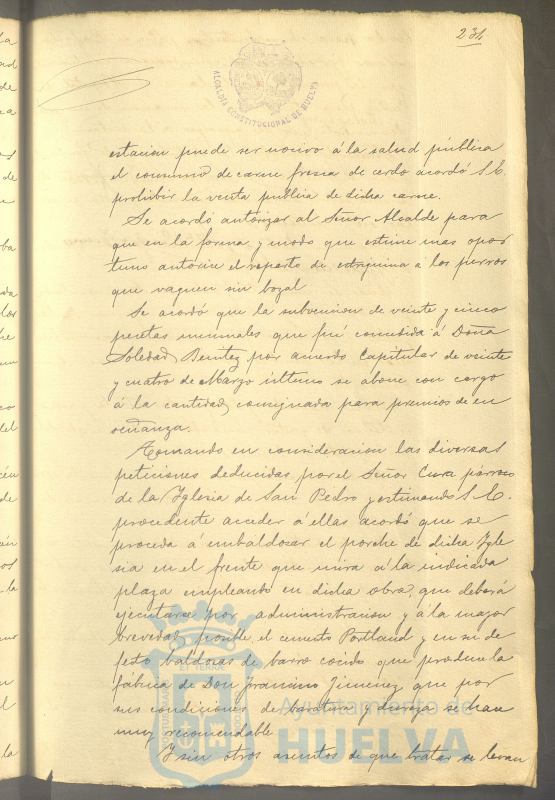 234
ALCALDÍA CONSTITUCIONAL DE HUELVA
estacion puede ser nocivo á la salud pública
el consumo de carne fresca de cerdo acordó S. E.
prohibir la venta publica de dicha carne.
Se acordó autorizar al Señor Alcalde para
que en la forma y modo que estime mas opor
tuno autorice el reparto de estrignina á los perros
que vaguen sin bozal
Se acordó que la subvencion de veinte y cinco
pesetas mensuales que fué concedida á Doña
Soledad Benitez por acuerdo Capitular de veinte
y cuatro de Marzo último se abone con cargo
á la cantidad consignada para premios de en
señanza.
Tomando en consideracion las diversas
peticiones deducidas por el Señor Cura párroco
de la Iglesia de San Pedro y estimando S. E.
procedente acceder á ellas acordó que se
proceda á embaldosar el porche de dicha Igle
sia en el frente que mira á la indicada
plaza empleando en dicha obra, que deberá
ejecutarse por administracion y á la mayor
brevedad posible, el cemento Portland y en su de
fecto baldosas de barro cocido que produce la
fábrica de Don Francisco Jimenez que por
sus condiciones de baratura y dureza se hace
muy recomendable
Y sin otros asuntos de que tratar se levan
Ayuntamiento de
HUELVA